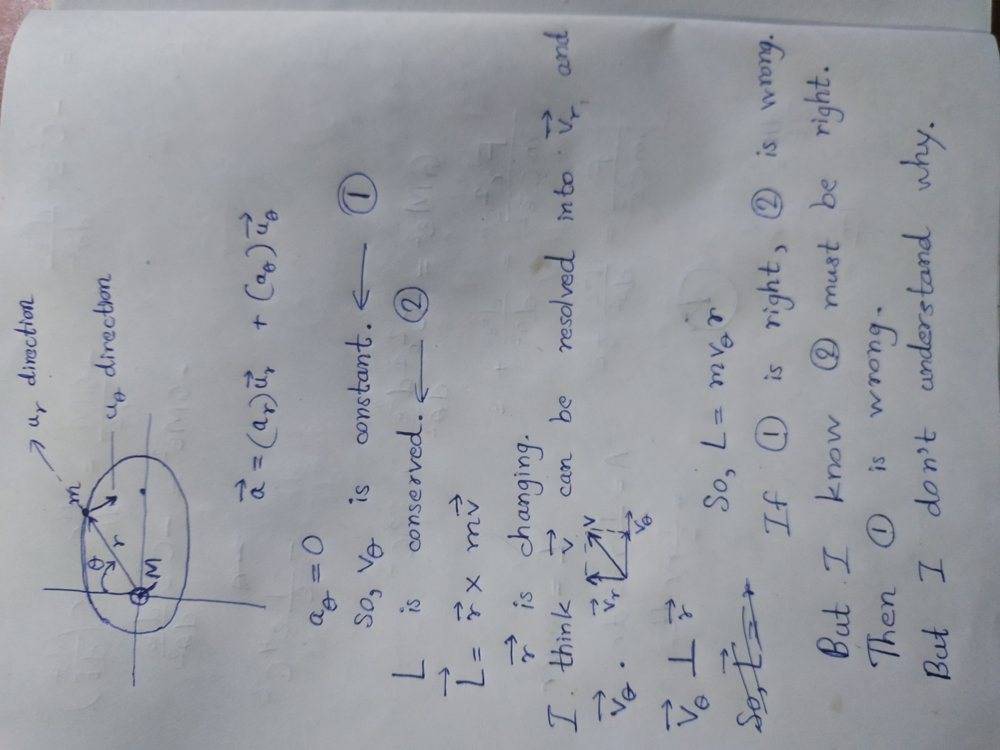 → u_r direction
m
θ
r
M
u_θ direction
→a = (a_r)→u_r + (a_θ)→u_θ
a_θ = 0
So, v_θ is constant. ← ①
L is conserved. ← ②
→L = →r × m→v
→r is changing.
I think →v can be resolved into →v_r, and
→v_θ. →v_r v →v_θ
→v_θ ⊥ →r
So, L = m v_θ r
If ① is right, ② is wrong.
But I know ② must be right.
Then ① is wrong.
But I don't understand why.